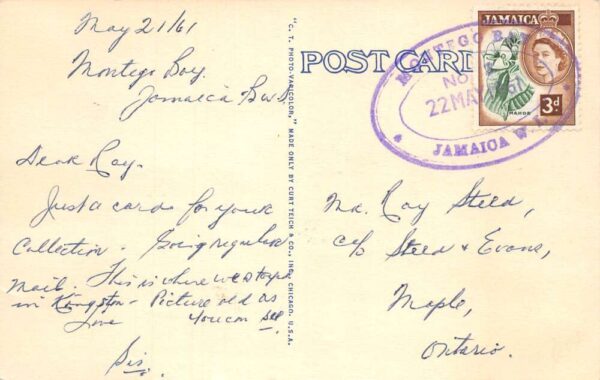 May 21/61
Montego Bay.
Jamaica B.W.I.
Dear Ray.
Just a card for your
Collection. Going regular
mail. This is where we stopped
in Kingston - Picture old as
Love you can see.
Sis.
"C. T. PHOTO-VARICOLOR," MADE ONLY BY CURT TEICH & CO., INC., CHICAGO, U.S.A.
POST CARD
MONTEGO BAY
NO.
22 MAY 61
JAMAICA W.
JAMAICA
MAHOE
3d
Mr. Ray Steed,
c/o Steed & Evans,
Maple,
Ontario.